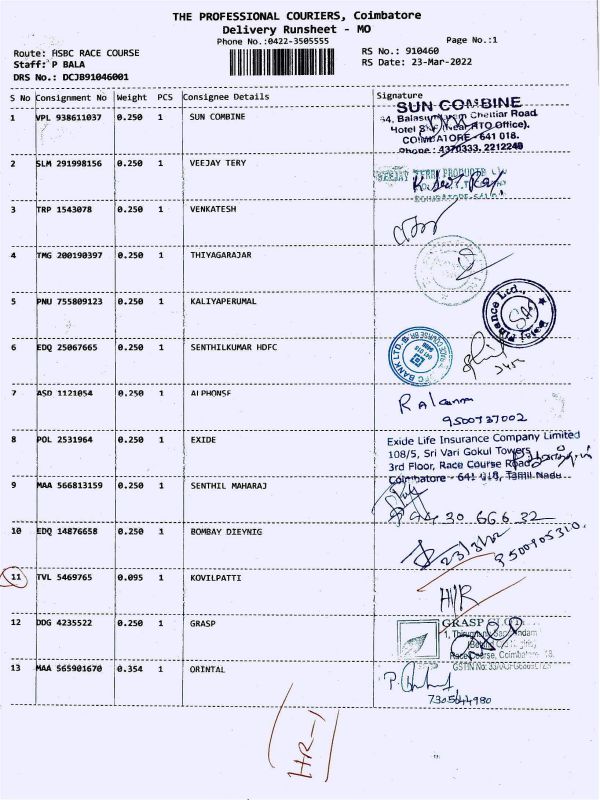 THE PROFESSIONAL COURIERS, Coimbatore
Delivery Runsheet - MO
Phone No.:0422-3505555
Page No.:1
Route: HSBC RACE COURSE
RS No.: 910460
Staff: P BALA
RS Date: 23-Mar-2022
DRS No.: DCJB91046001
S No Consignment No Weight PCS Consignee Details Signature
1 VPL 938611037 0.250 1 SUN COMBINE
SUN COMBINE
44, Balasundaram Chettiar Road
Hotel (Near RTO Office).
COIMBATORE - 641 018.
Phone : 4370333, 2212249
2 SLM 291998156 0.250 1 VEEJAY TERY
VEEJAY TERRY PRODUCTS
3 TRP 1543078 0.250 1 VENKATESH
4 TMG 200190397 0.250 1 THIYAGARAJAR
5 PNU 755809123 0.250 1 KALIYAPERUMAL
Bajaj Finance Ltd.,
6 EDQ 25067665 0.250 1 SENTHILKUMAR HDFC
BANK LTD.
7 ASD 1121054 0.250 1 ALPHONSE
9500737002
8 POL 2531964 0.250 1 EXIDE
Exide Life Insurance Company Limited
108/5, Sri Vari Gokul Towers
3rd Floor, Race Course Road
Coimbatore - 641 018, Tamil Nadu
9 MAA 566813159 0.250 1 SENTHIL MAHARAJ
10 EDQ 14876658 0.250 1 BOMBAY DIEYNIG
23/3/22
9500905310.
11 TVL 5469765 0.095 1 KOVILPATTI
H/R
12 DDG 4235522 0.250 1 GRASP
GRASP
Race Course, Coimbatore
GSTIN No:
13 MAA 565901670 0.354 1 ORINTAL
HR-1